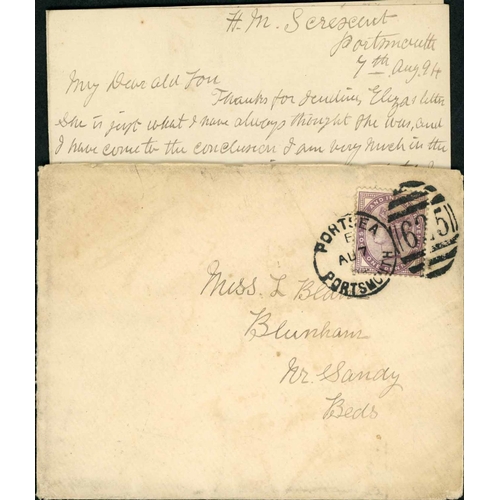 H. M. S crescent
Portsmouth
7th Aug. 94
My Dear old
Thanks for sending Elizas letter
She is just what I have always thought she was, and
I have come to the conclusion I am very much in the
PORTSEA
AU 7
PORTSMOUTH
625
Miss. L
Blunham
Nr. Sandy
Beds